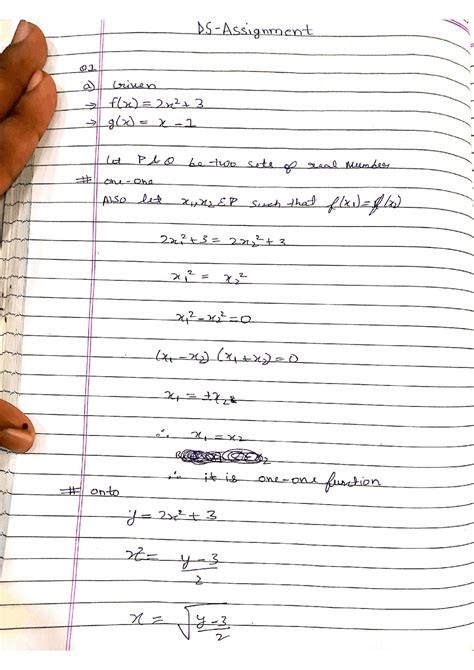 DS-Assignment
Q1
a) Given
→ f(x) = 2x² + 3
→ g(x) = x - 1
Let P & Q be two sets of real Number
# one-one
Also let x₁, x₂ ε P such that f(x₁) = f(x₂)
2x₁² + 3 = 2x₂² + 3
x₁² = x₂²
x₁² - x₂² = 0
(x₁ - x₂) (x₁ + x₂) = 0
x₁ = ±x₂
∴ x₁ = x₂
∴ it is one-one function
# onto
y = 2x² + 3
x² = y-3/2
x = √y-3/2